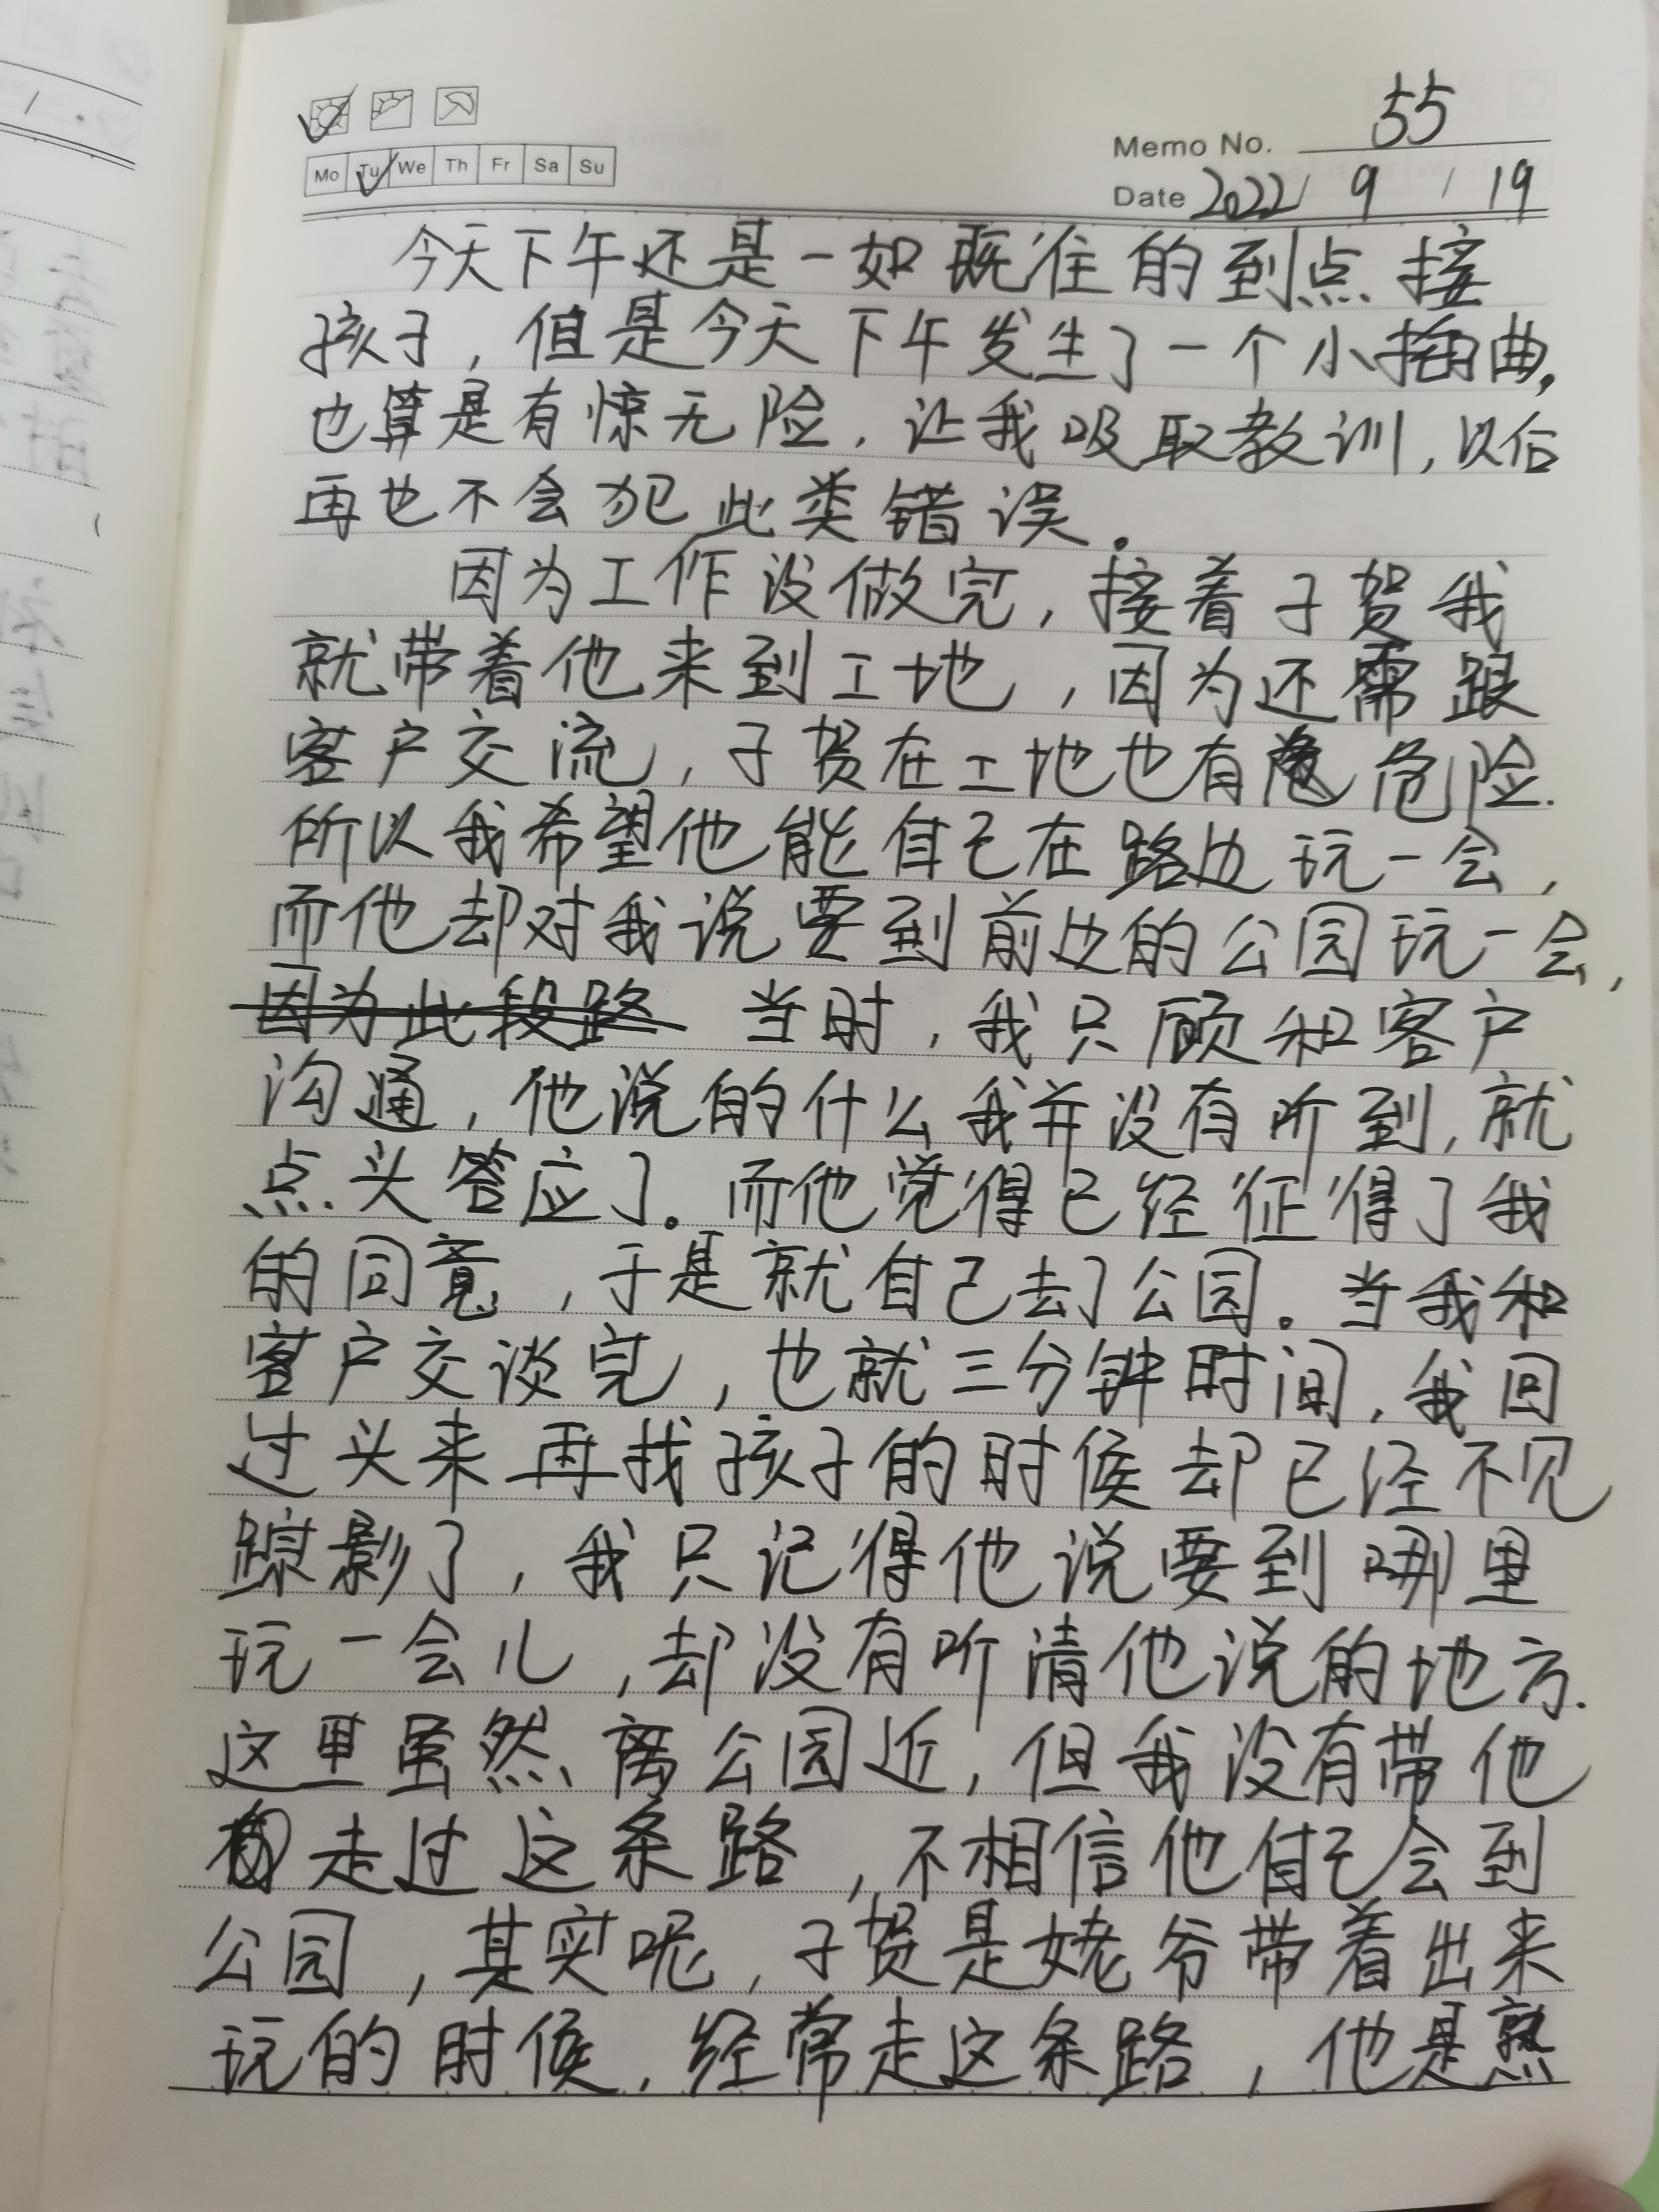 Memo No. 55
Mo Tu We Th Fr Sa Su
Date 2022 / 9 / 19
今天下午还是一如既往的到点接
孩子，但是今天下午发生了一个小插曲，
也算是有惊无险，让我吸取教训，以后
再也不会犯此类错误。
因为工作没做完，接着子贺我
就带着他来到工地，因为还需跟
客户交流，子贺在工地也有危险.
所以我希望他能自己在路边玩一会，
而他却对我说要到前边的公园玩一会，
因为此段路 当时，我只顾和客户
沟通，他说的什么我并没有听到，就
点头答应了。而他觉得已经征得了我
的同意，于是就自己去了公园。当我和
客户交谈完，也就三分钟时间，我回
过头来再找孩子的时候却已经不见
踪影了，我只记得他说要到哪里
玩一会儿，却没有听清他说的地方.
这里虽然离公园近，但我没有带他
走过这条路，不相信他自己会到
公园，其实呢，子贺是姥爷带着出来
玩的时候，经常走这条路，他是熟